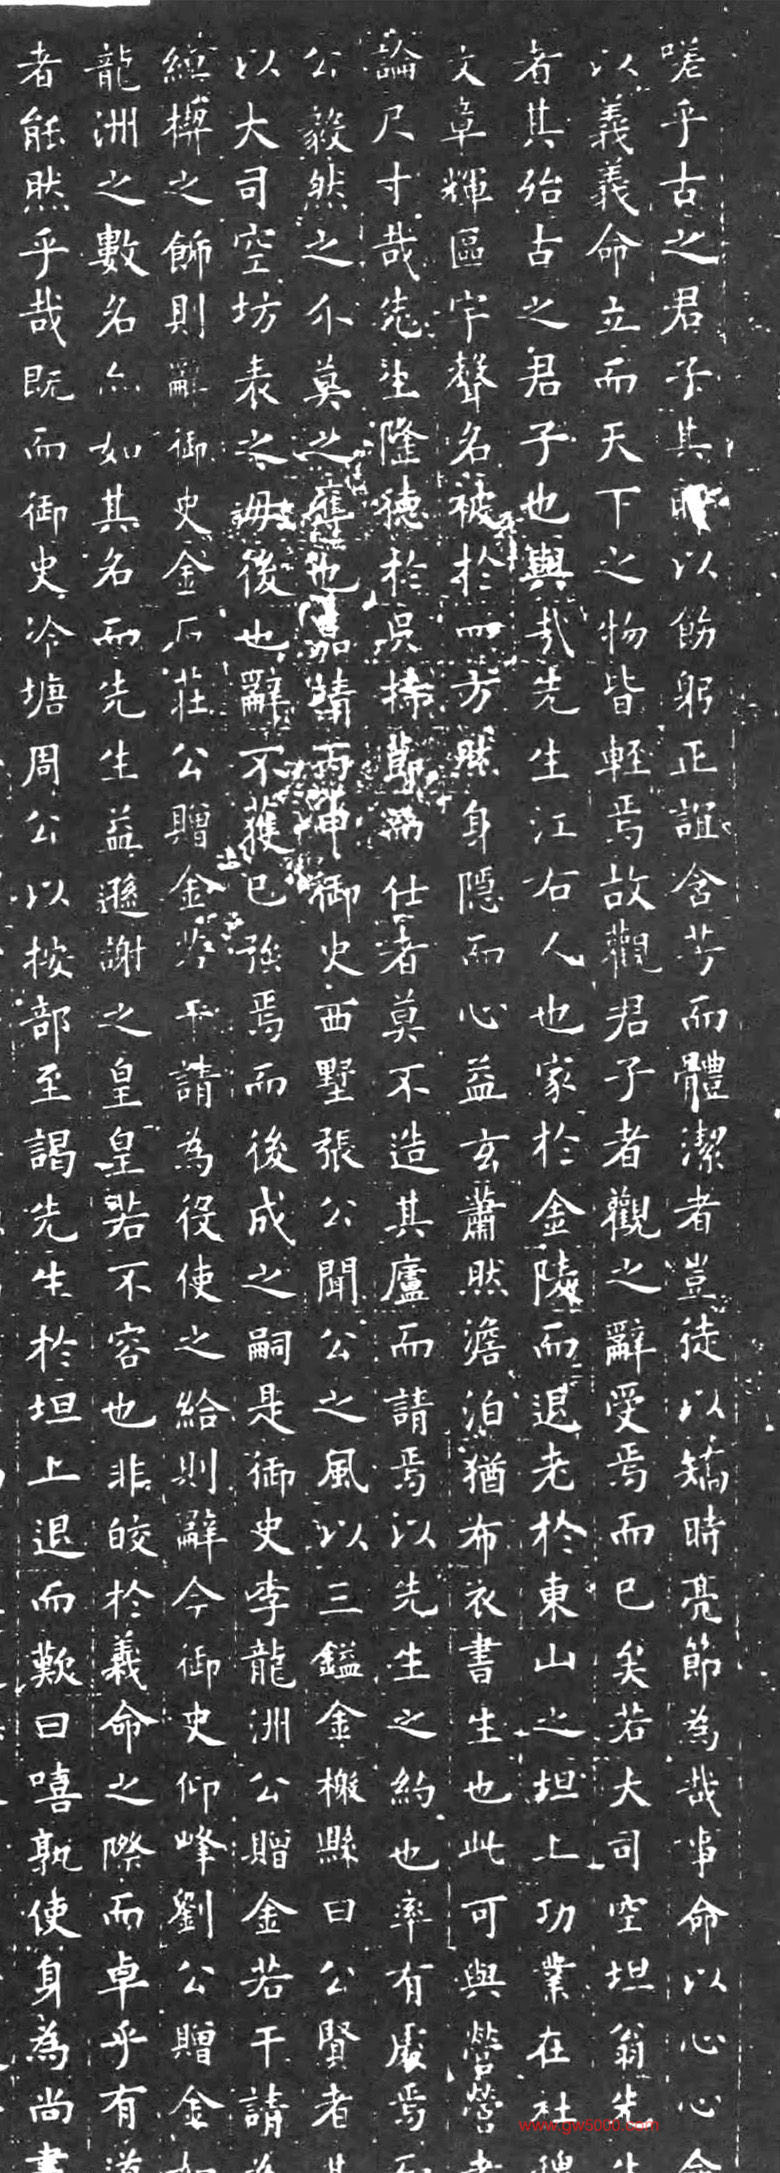 嗟乎古之君子其以飭躬正誼含芳而體潔者豈徒以矯時亮節為哉事命以心心命
以義義命立而天下之物皆輕焉故觀君子者觀之辭受焉而已矣若大司空坦翁先生
者其殆古之君子也與哉先生江右人也家於金陵而退老於東山之坦上功業在社稷
文章輝區宇聲名被於四方然身隱而心益玄蕭然澹泊猶布衣書生也此可與營營者
論尺寸哉先生隆德於吳持節為仕者莫不造其廬而請焉以先生之約也率有處焉而
公毅然之介莫之奪也嘉靖丙申御史西墅張公聞公之風以三鎰金檄縣曰公賢者其
以大司空坊表之毋後也辭不獲已強焉而後成之嗣是御史李龍洲公贈金若干請為
綽楔之飾則辭御史金石莊公贈金若干請為役使之給則辭今御史仰峰劉公贈金如
龍洲之數名亦如其名而先生益遜謝之皇皇若不容也非皎於義命之際而卓乎有道
者能然乎哉既而御史冷塘周公以按部至謁先生於坦上退而歎曰嘻孰使身為尚書
www.gw5000.com